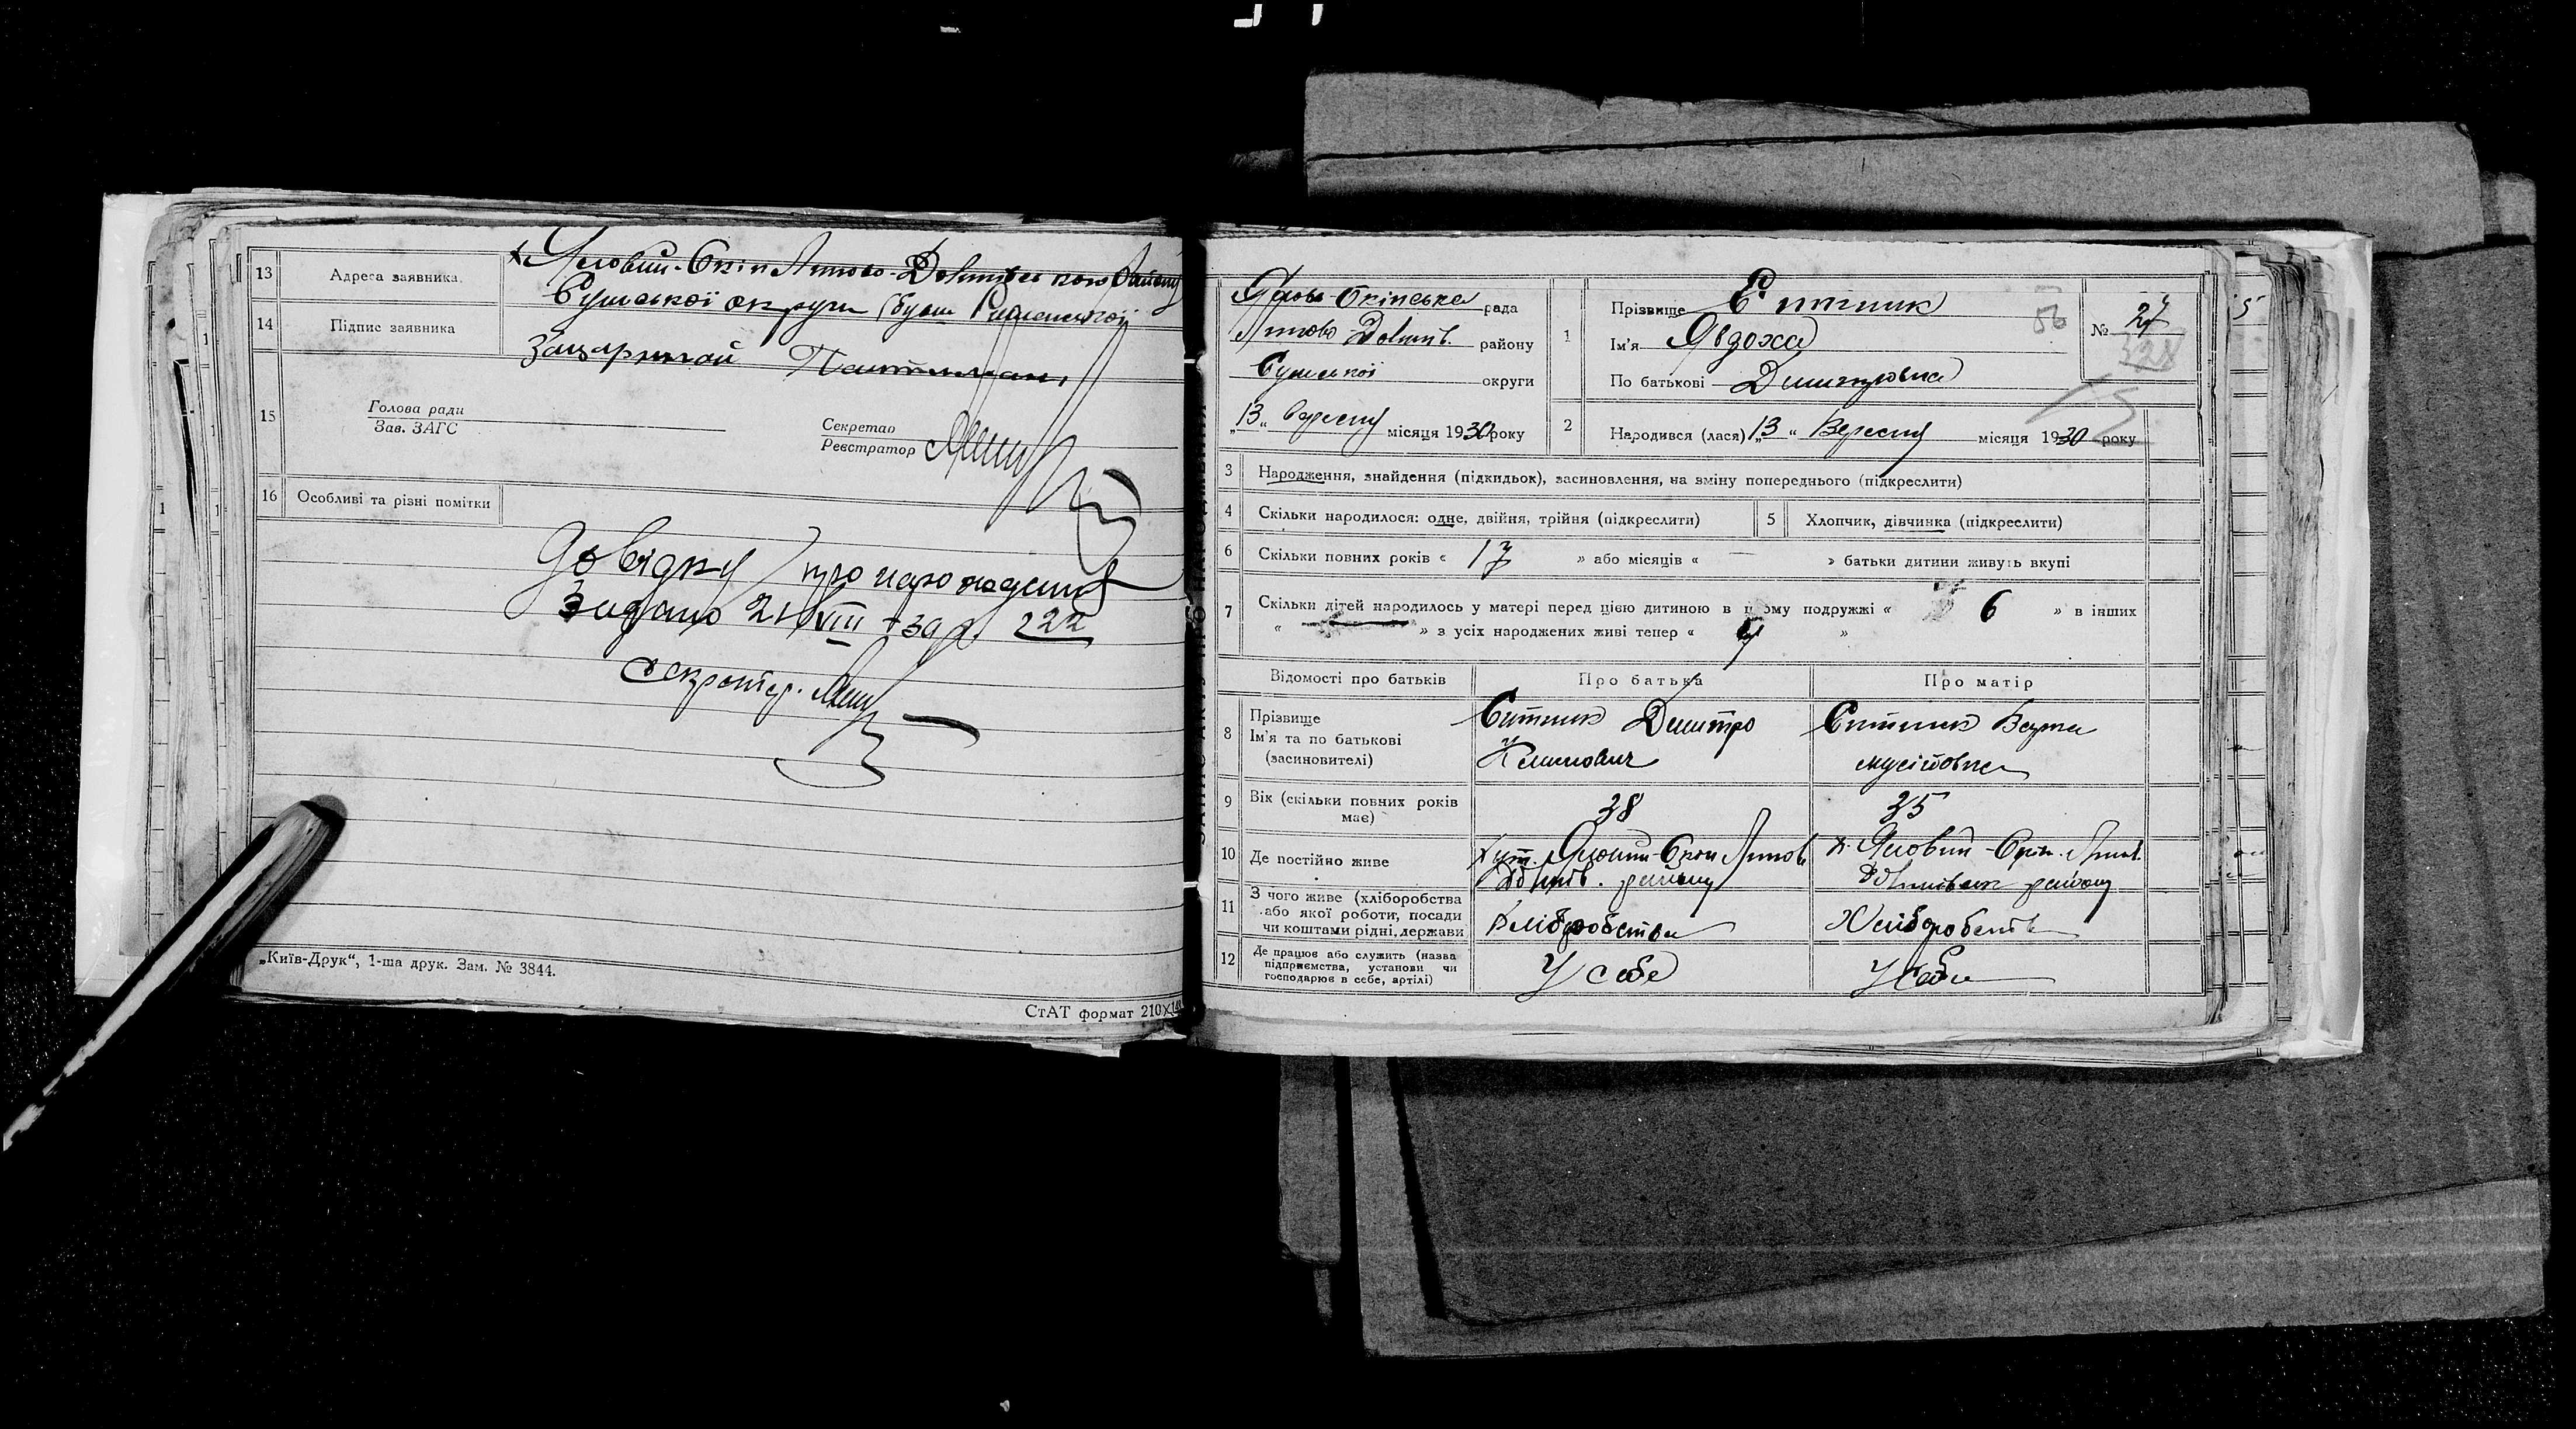 13 Адреса заявника. х Яловий-Окіп Липово-Долинського району
Сумської округи (бувш Роменської
14 Підпис заявника
15 Голова ради
Зав. ЗАГС
Секретар
Реєстратор
16 Особливі та різні помітки
Довідку про народження
Видано 21/VIII 30 р. 222
Секретар.
„Київ-Друк“, 1-ша друк. Зам. № 3844.
СтАТ формат 210×148
Ялово-Окіпська рада
Липово Долинів. району
Сумської округи
„13“ вересня місяця 1930 року
1 Прізвище Ситник
Ім'я Явдоха
По батькові Дмитровна
№ 27
56
2 Народився (лася) „13“ Вересня місяця 1930 року
3 Народження, знайдення (підкидьок), засиновлення, на зміну попереднього (підкреслити)
4 Скільки народилося: одне, двійня, трійня (підкреслити) 5 Хлопчик, дівчинка (підкреслити)
6 Скільки повних років « 17 » або місяців « — » батьки дитини живуть вкупі
7 Скільки дітей народилось у матері перед цією дитиною в цьому подружжі « 6 » в інших
« — » з усіх народжених живі тепер « »
Відомості про батьків Про батька Про матір
8 Прізвище
Ім'я та по батькові
(засиновителі)
Ситник Дмитро
Климович
Ситник
Мусіївна
9 Вік (скільки повних років має) 38 35
10 Де постійно живе
Хут. Яловий-Окіп Липово
Долинів. району
х. Яловий-Окіп. Липов.
Долинівськ району
11 З чого живе (хліборобства
або якої роботи, посади
чи коштами рідні, держави
Хліборобства
Хліборобств
12 Де працює або служить (назва
підприємства, установи чи
господарює в себе, артілі)
У себе
У себе